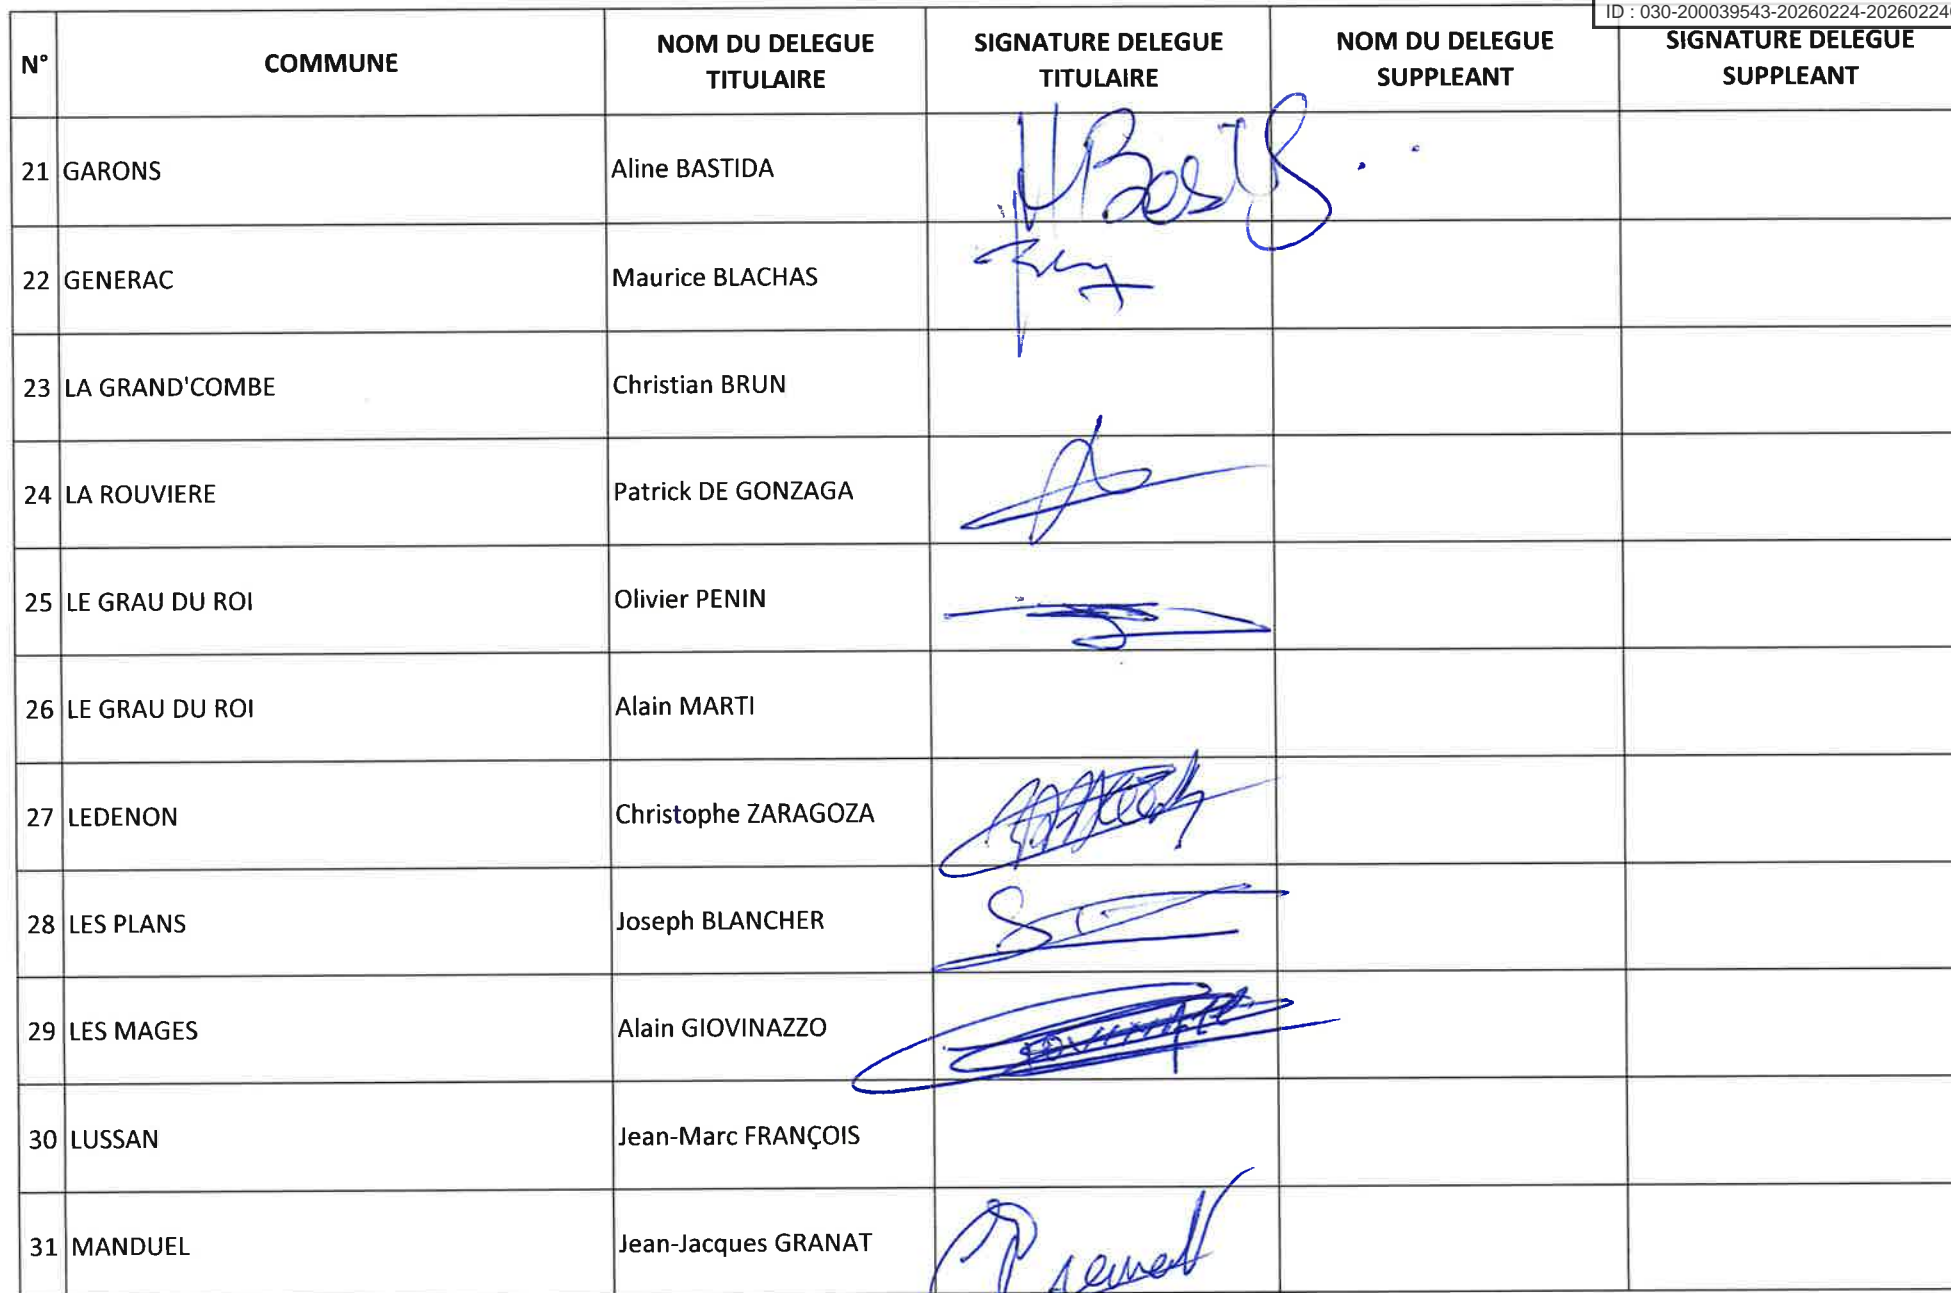 ID : 030-200039543-20260224-20260224
N° COMMUNE NOM DU DELEGUE TITULAIRE SIGNATURE DELEGUE TITULAIRE NOM DU DELEGUE SUPPLEANT SIGNATURE DELEGUE SUPPLEANT
21 GARONS Aline BASTIDA
22 GENERAC Maurice BLACHAS
23 LA GRAND'COMBE Christian BRUN
24 LA ROUVIERE Patrick DE GONZAGA
25 LE GRAU DU ROI Olivier PENIN
26 LE GRAU DU ROI Alain MARTI
27 LEDENON Christophe ZARAGOZA
28 LES PLANS Joseph BLANCHER
29 LES MAGES Alain GIOVINAZZO
30 LUSSAN Jean-Marc FRANÇOIS
31 MANDUEL Jean-Jacques GRANAT